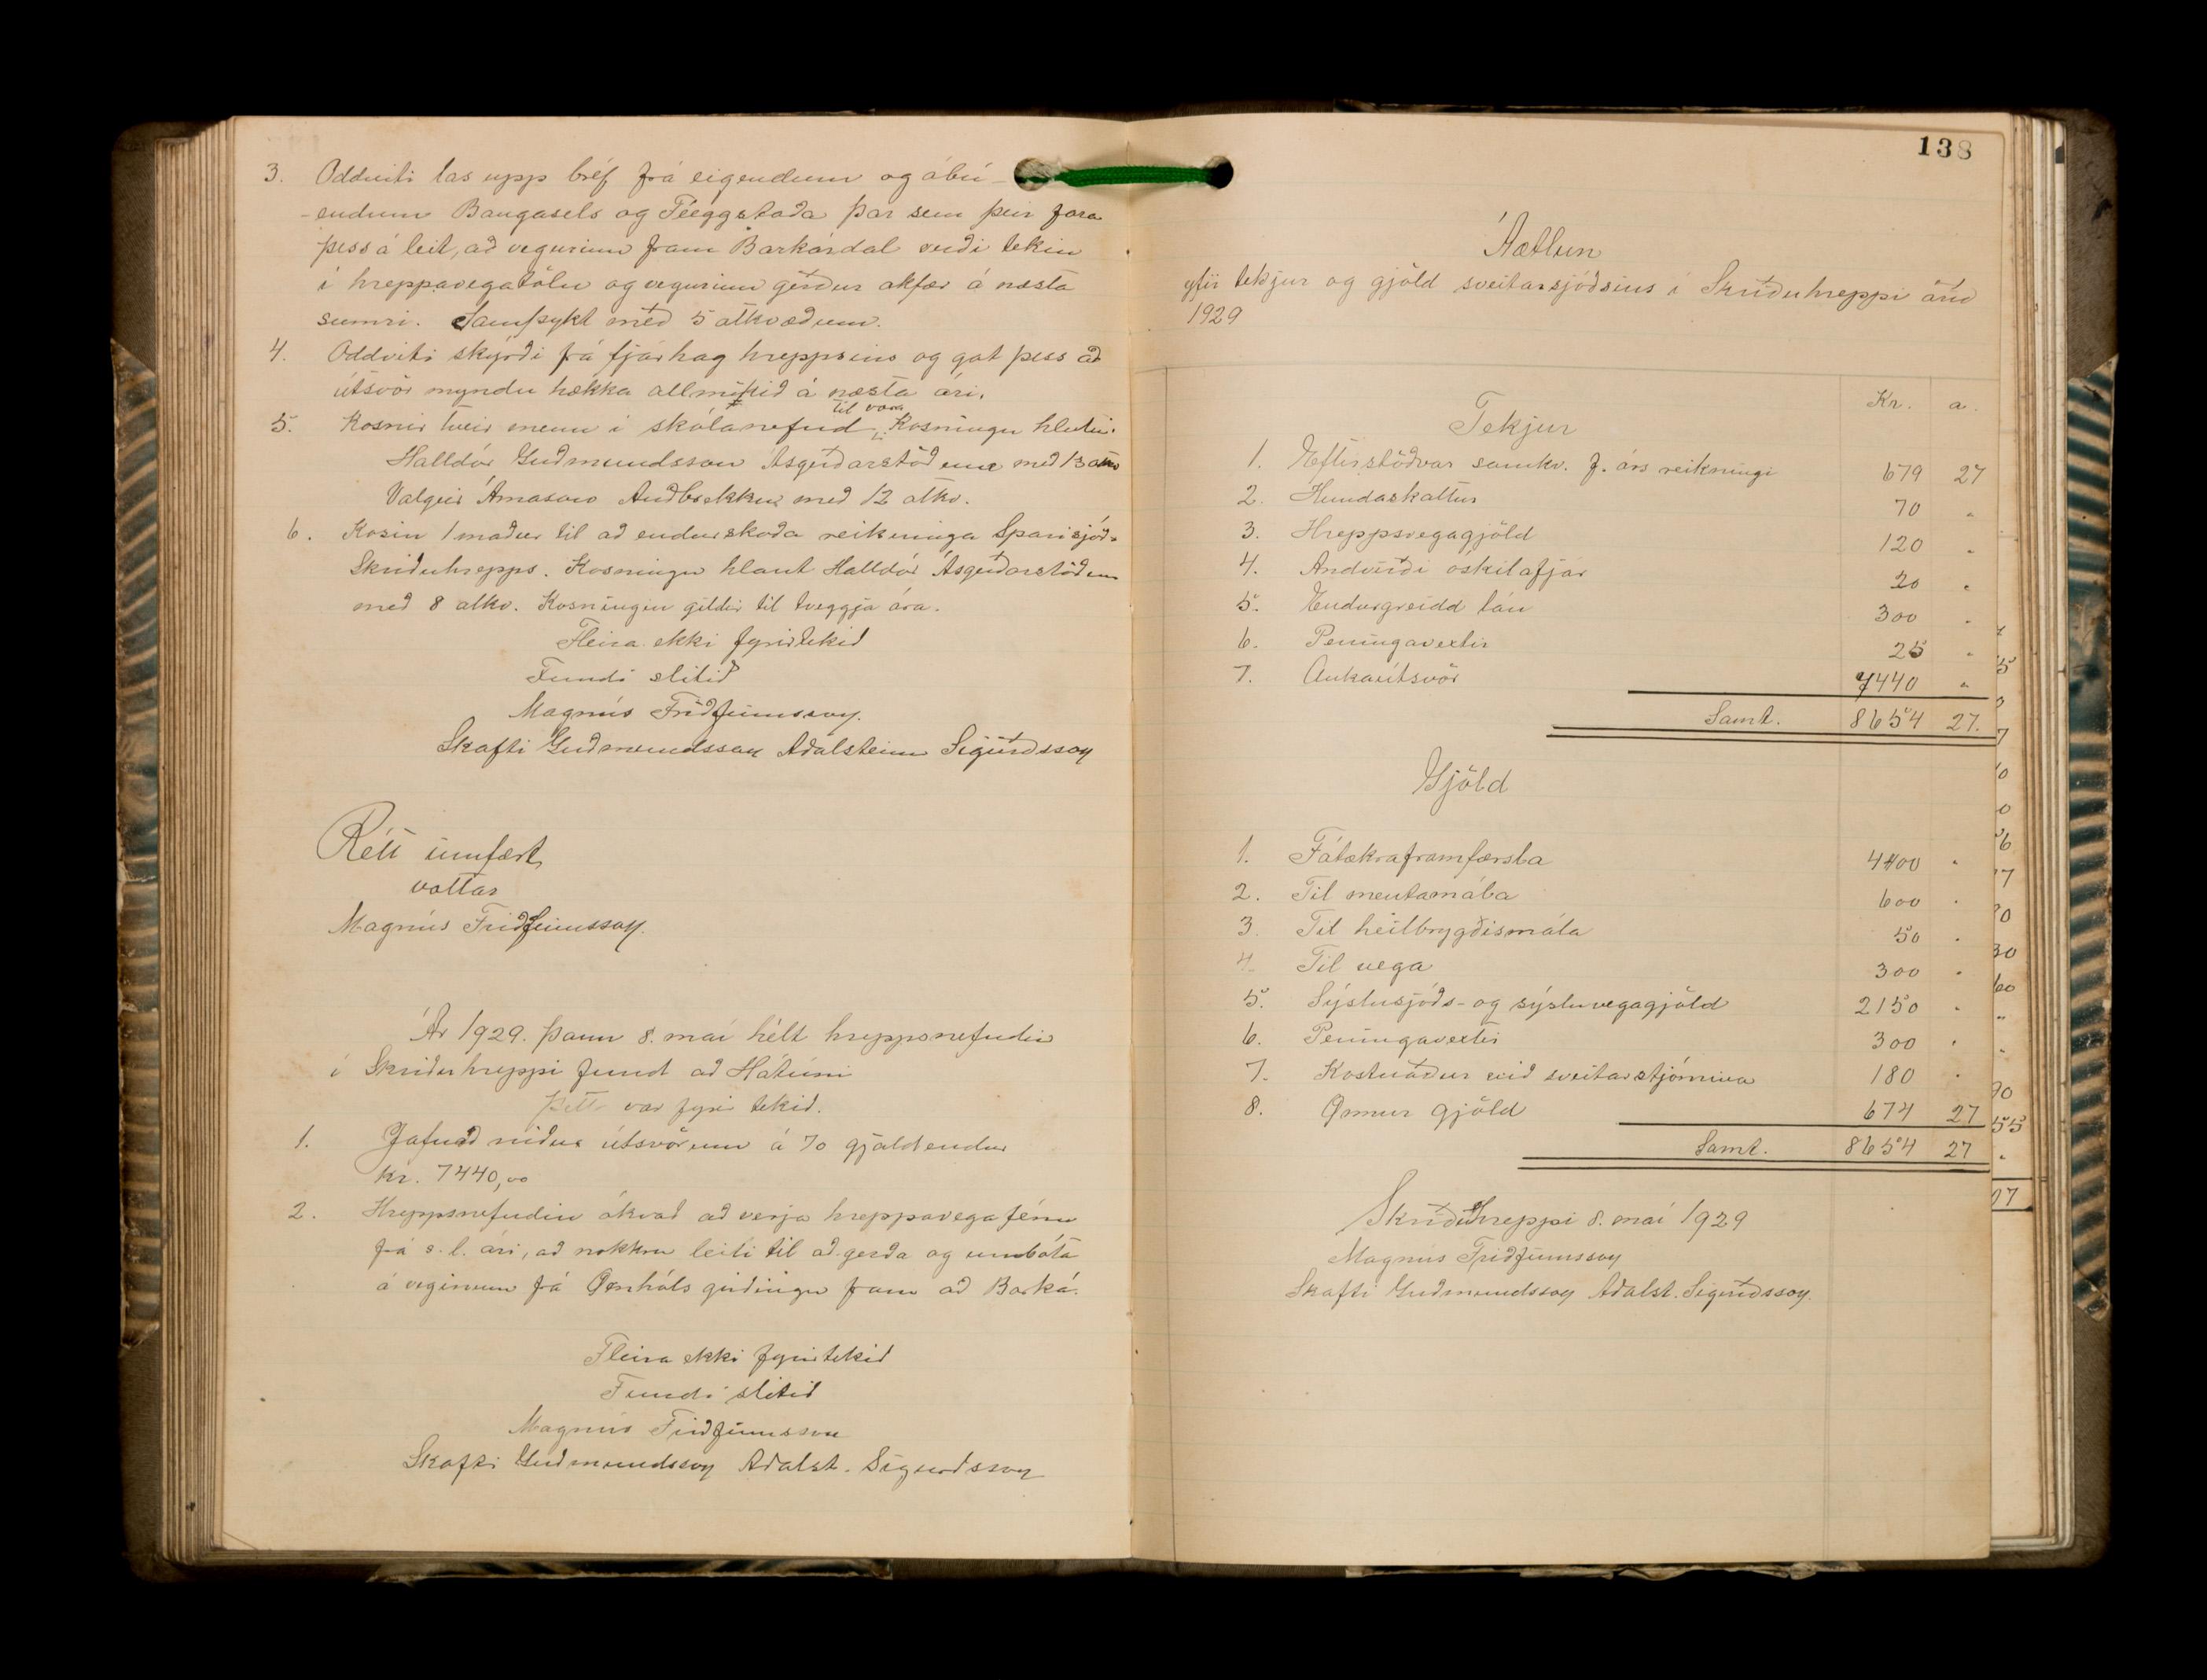 3. Oddviti las upp bréf frá eigendum og ábú-
-endum Baugasels og Féeggstaða þar sem þeir fara
þess á leit, að vegurinn fram Barkárdal verði tekin
í hreppavegatölu og vegurinn gerður akfær á næsta
sumri. Samþykt með 5 atkvæðum.
4. Oddviti skýrði frá fjárhag hreppsins og gat þess að
útsvör myndu hækka allmikið á næsta ári.
5. Kosnir tveir menn í skólanefnd til vara. Kosningu hlutu.
Halldór Guðmundsson Ásgerðarstöðum með 13 atkv
Valgeir Árnason Auðbrekku með 12 atkv.
6. Kosin 1 maður til að endurskoða reikninga Sparisjóð-
Skriðuhrepps. Kosningu hlaut Halldór Ásgerðarstöðum
með 8 atkv. Kosningin gildir til tveggja ára.
Fleira ekki fyrirtekið
Fundi slitið
Magnús Friðfinnsson.
Skafti Guðmundsson Aðalsteinn Sigurðsson
Rétt innfært
vottar
Magnús Friðfinnsson.
Ár 1929. Þann 8. maí hélt hreppsnefndin
í Skriðuhreppi fund að Hátúni
Þetta var fyrir tekið.
1. Jafnað niður útsvörum á 70 gjaldendur
kr. 7440,00
2. Hreppsnefndin ákvað að verja hreppavegafénu
frá s.l. ári, að nokkru leiti til aðgerða og umbóta
á veginum frá Ørnhóls girðingu fram að Barká.
Fleira ekki fyrirtekið
Fundi slitið
Magnús Friðfinnsson
Skafti Guðmundsson Aðalst. Sigurðsson
138
Áætlun
yfir tekjur og gjöld sveitarsjóðsins í Skriðuhreppi árið
1929
Kr. a.
Tekjur
1. Eftirstöðvar samkv. f. árs reikningi 679 27
2. Hundaskattur 70 "
3. Hreppsvegagjöld 120 "
4. Andvirði óskilafjár 20 "
5. Endurgreidd lán 300 "
6. Peningavextir 25 "
7. Aukaútsvör 7440 "
Samt. 8654 27.
Gjöld
1. Fátækraframfærsla 4400 "
2. Til mentamála 600 "
3. Til heilbrygðismála 50 "
4. Til vega 300 "
5. Sýslusjóðs- og sýsluvegagjöld 2150 "
6. Peningavextir 300 "
7. Kostnaður við sveitarstjórnina 180 "
8. Ønnur gjöld 674 27
Samt. 8654 27
Skriðuhreppi 8. maí 1929
Magnús Friðfinnsson
Skafti Guðmundsson Aðalst. Sigurðsson.